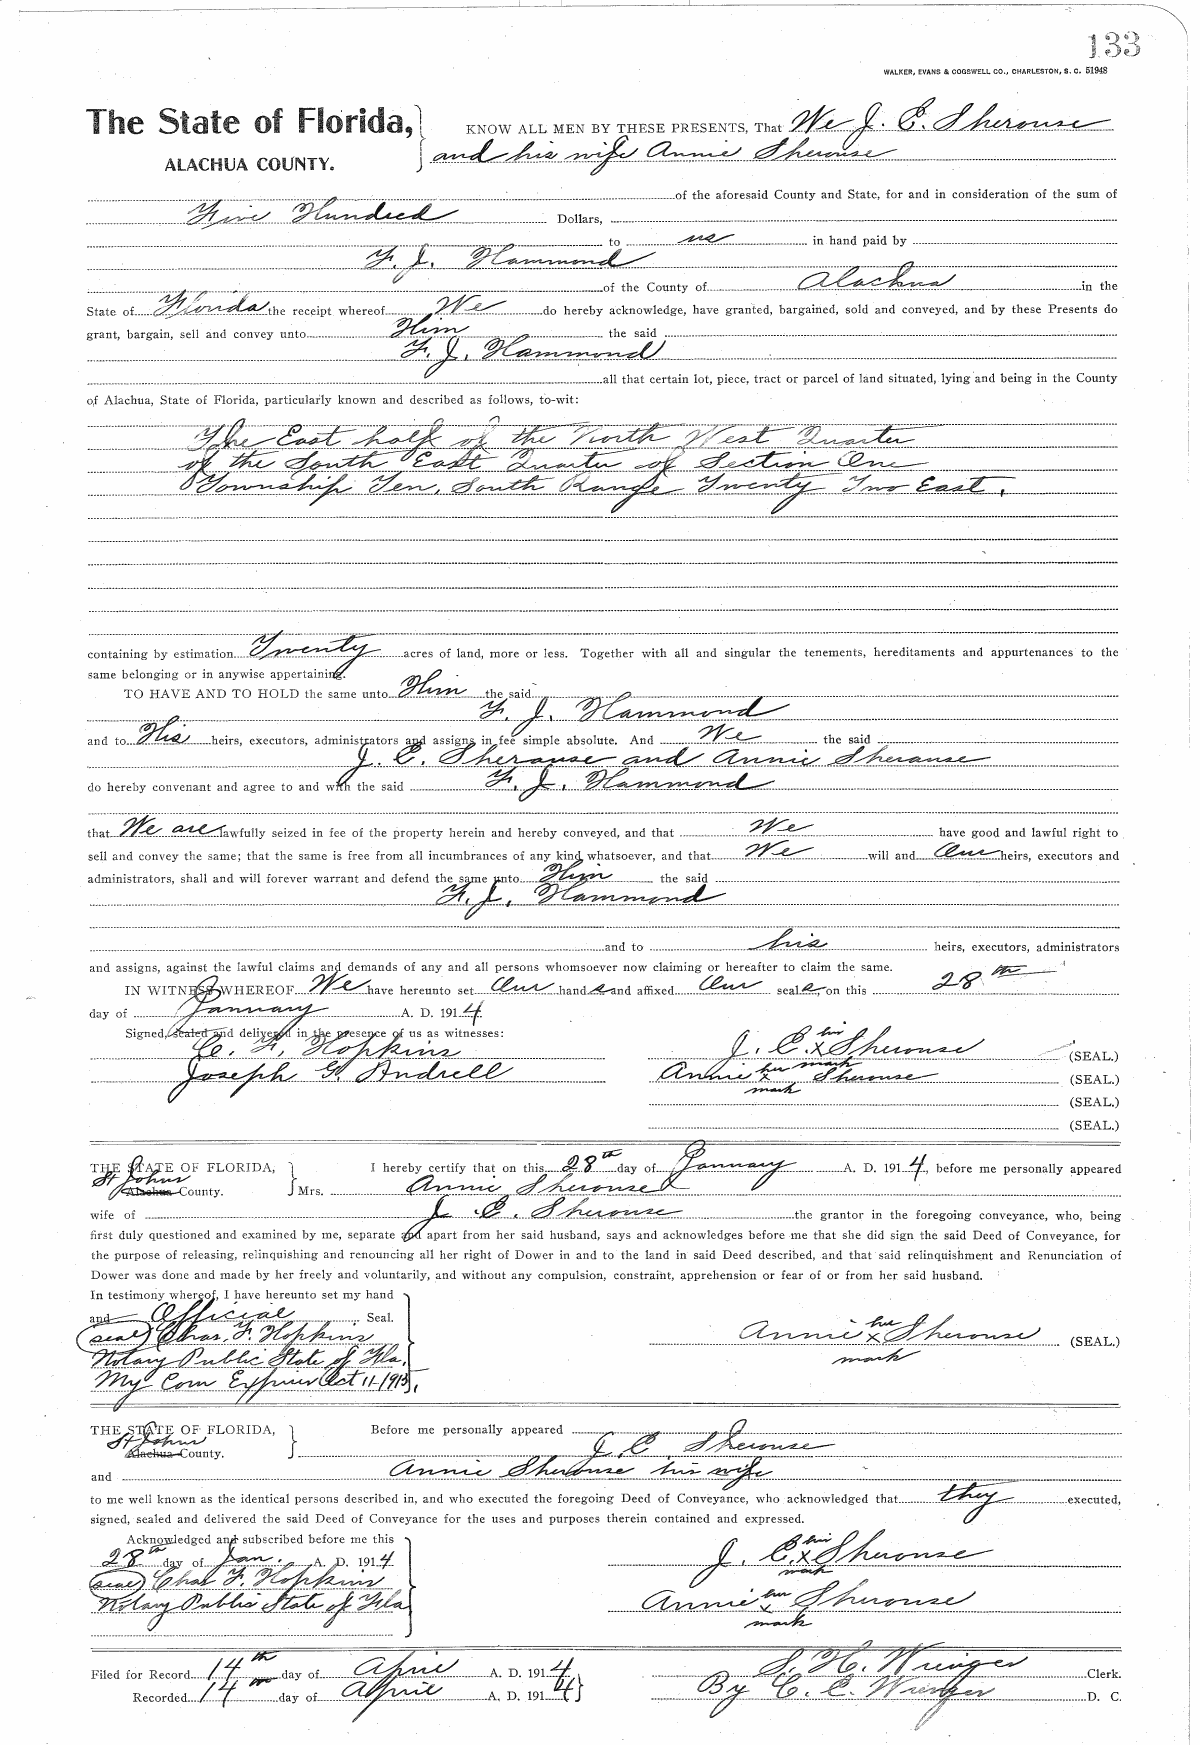 133
WALKER, EVANS & COGSWELL CO., CHARLESTON, S. C. 51948
The State of Florida,
ALACHUA COUNTY.
KNOW ALL MEN BY THESE PRESENTS, That We J. E. Sherouse
and his wife Annie Sherouse
of the aforesaid County and State, for and in consideration of the sum of
Five Hundred Dollars,
to us in hand paid by
F. J. Hammond
of the County of Alachua in the
State of Florida the receipt whereof We do hereby acknowledge, have granted, bargained, sold and conveyed, and by these Presents do
grant, bargain, sell and convey unto Him the said
F. J. Hammond
all that certain lot, piece, tract or parcel of land situated, lying and being in the County
of Alachua, State of Florida, particularly known and described as follows, to-wit:
The East half of the North West Quarter
of the South East Quarter of Section One
Township Ten, South Range Twenty Two East.
containing by estimation Twenty acres of land, more or less. Together with all and singular the tenements, hereditaments and appurtenances to the
same belonging or in anywise appertaining.
TO HAVE AND TO HOLD the same unto Him the said
F. J. Hammond
and to His heirs, executors, administrators and assigns in fee simple absolute. And We the said
J. E. Sherouse and Annie Sherouse
do hereby convenant and agree to and with the said F. J. Hammond
that We are lawfully seized in fee of the property herein and hereby conveyed, and that We have good and lawful right to
sell and convey the same; that the same is free from all incumbrances of any kind whatsoever, and that We will and Our heirs, executors and
administrators, shall and will forever warrant and defend the same unto Him the said
F. J. Hammond
and to his heirs, executors, administrators
and assigns, against the lawful claims and demands of any and all persons whomsoever now claiming or hereafter to claim the same.
IN WITNESS WHEREOF We have hereunto set Our hands and affixed Our seals, on this 28th
day of January A. D. 1914.
Signed, sealed and delivered in the presence of us as witnesses:
C. F. Hopkins
J. E. his x mark Sherouse (SEAL.)
Joseph G. Andrell
Annie her x mark Sherouse (SEAL.)
(SEAL.)
(SEAL.)
THE STATE OF FLORIDA,
St Johns
Alachua County.
I hereby certify that on this 28th day of January A. D. 1914, before me personally appeared
Mrs. Annie Sherouse
wife of J. E. Sherouse the grantor in the foregoing conveyance, who, being
first duly questioned and examined by me, separate and apart from her said husband, says and acknowledges before me that she did sign the said Deed of Conveyance, for
the purpose of releasing, relinquishing and renouncing all her right of Dower in and to the land in said Deed described, and that said relinquishment and Renunciation of
Dower was done and made by her freely and voluntarily, and without any compulsion, constraint, apprehension or fear of or from her said husband.
In testimony whereof, I have hereunto set my hand
and Official Seal.
(seal) Chas. F. Hopkins
Annie her x mark Sherouse (SEAL.)
Notary Public State of Fla.
My Com Expires Oct 11-1915.
THE STATE OF FLORIDA,
St Johns
Alachua County.
Before me personally appeared
J. E. Sherouse
and Annie Sherouse his wife
to me well known as the identical persons described in, and who executed the foregoing Deed of Conveyance, who acknowledged that they executed,
signed, sealed and delivered the said Deed of Conveyance for the uses and purposes therein contained and expressed.
Acknowledged and subscribed before me this
28th day of Jan. A. D. 1914
J. E. his x mark Sherouse
(seal) Chas F. Hopkins
Notary Public State of Fla
Annie her x mark Sherouse
Filed for Record 14th day of April A. D. 1914
S. H. Wienges Clerk.
Recorded 14th day of April A. D. 1914
By C. E. Wienges D. C.